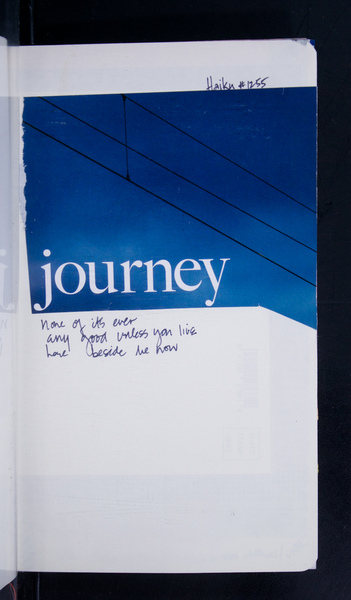 Haiku #1255
journey
none of its ever
any good unless you live
here beside me now